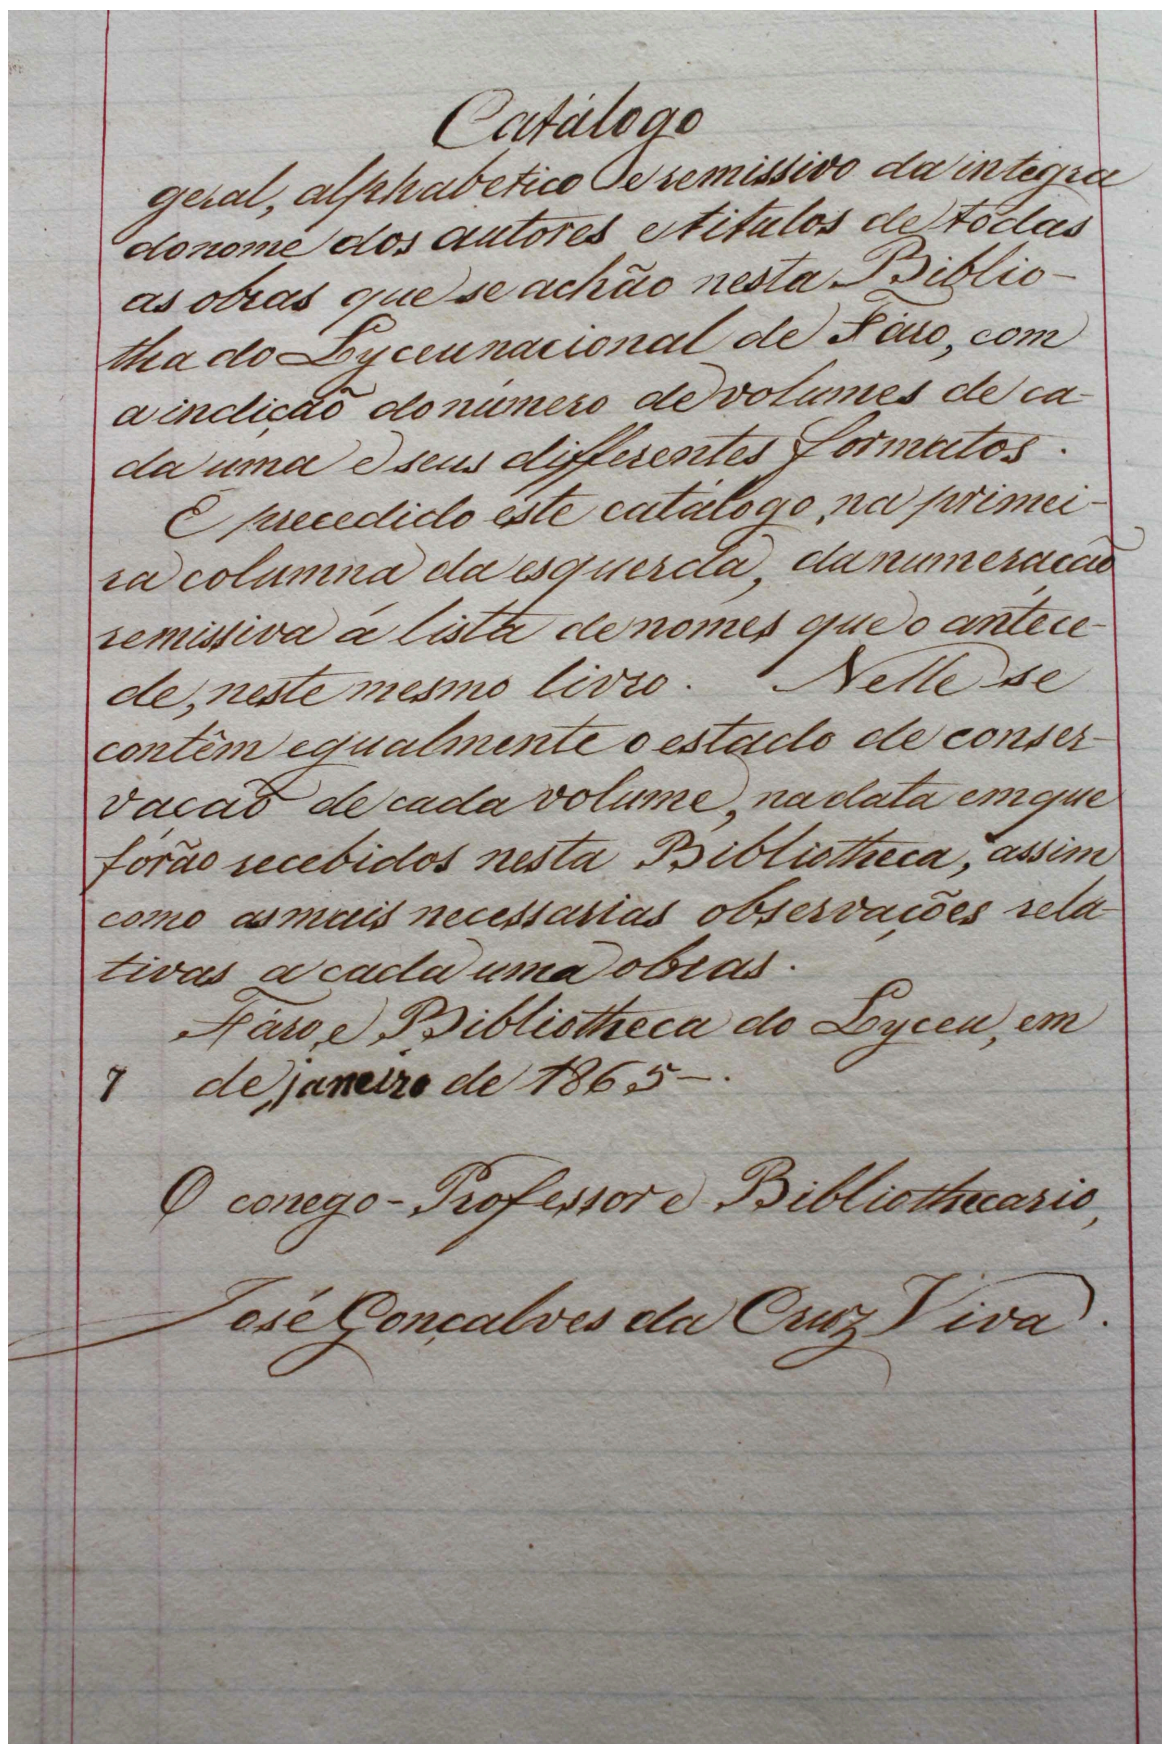 Catálogo
geral, alphabetico e remissivo da integra
do nome dos autores e titulos de todas
as obras que se achão nesta Biblio-
tha do Lyceu nacional de Fáro, com
a indição do número de volumes de ca-
da uma e seus differentes formatos.
É precedido éste catálogo, na primei-
ra columna da esquerda, da numeração
remissiva á lista de nomes que o antece-
de, neste mesmo livro. Nelle se
contêm egualmente o estado de conser-
vação de cada volume, na data em que
forão recebidos nesta Bibliotheca, assim
como as mais necessarias observações rela-
tivas a cada uma obras.
Fáro, e Bibliotheca do Lyceu, em
7 de janeiro de 1865-.
O conego-Professor e Bibliothecario,
José Gonçalves da Cruz Viva.